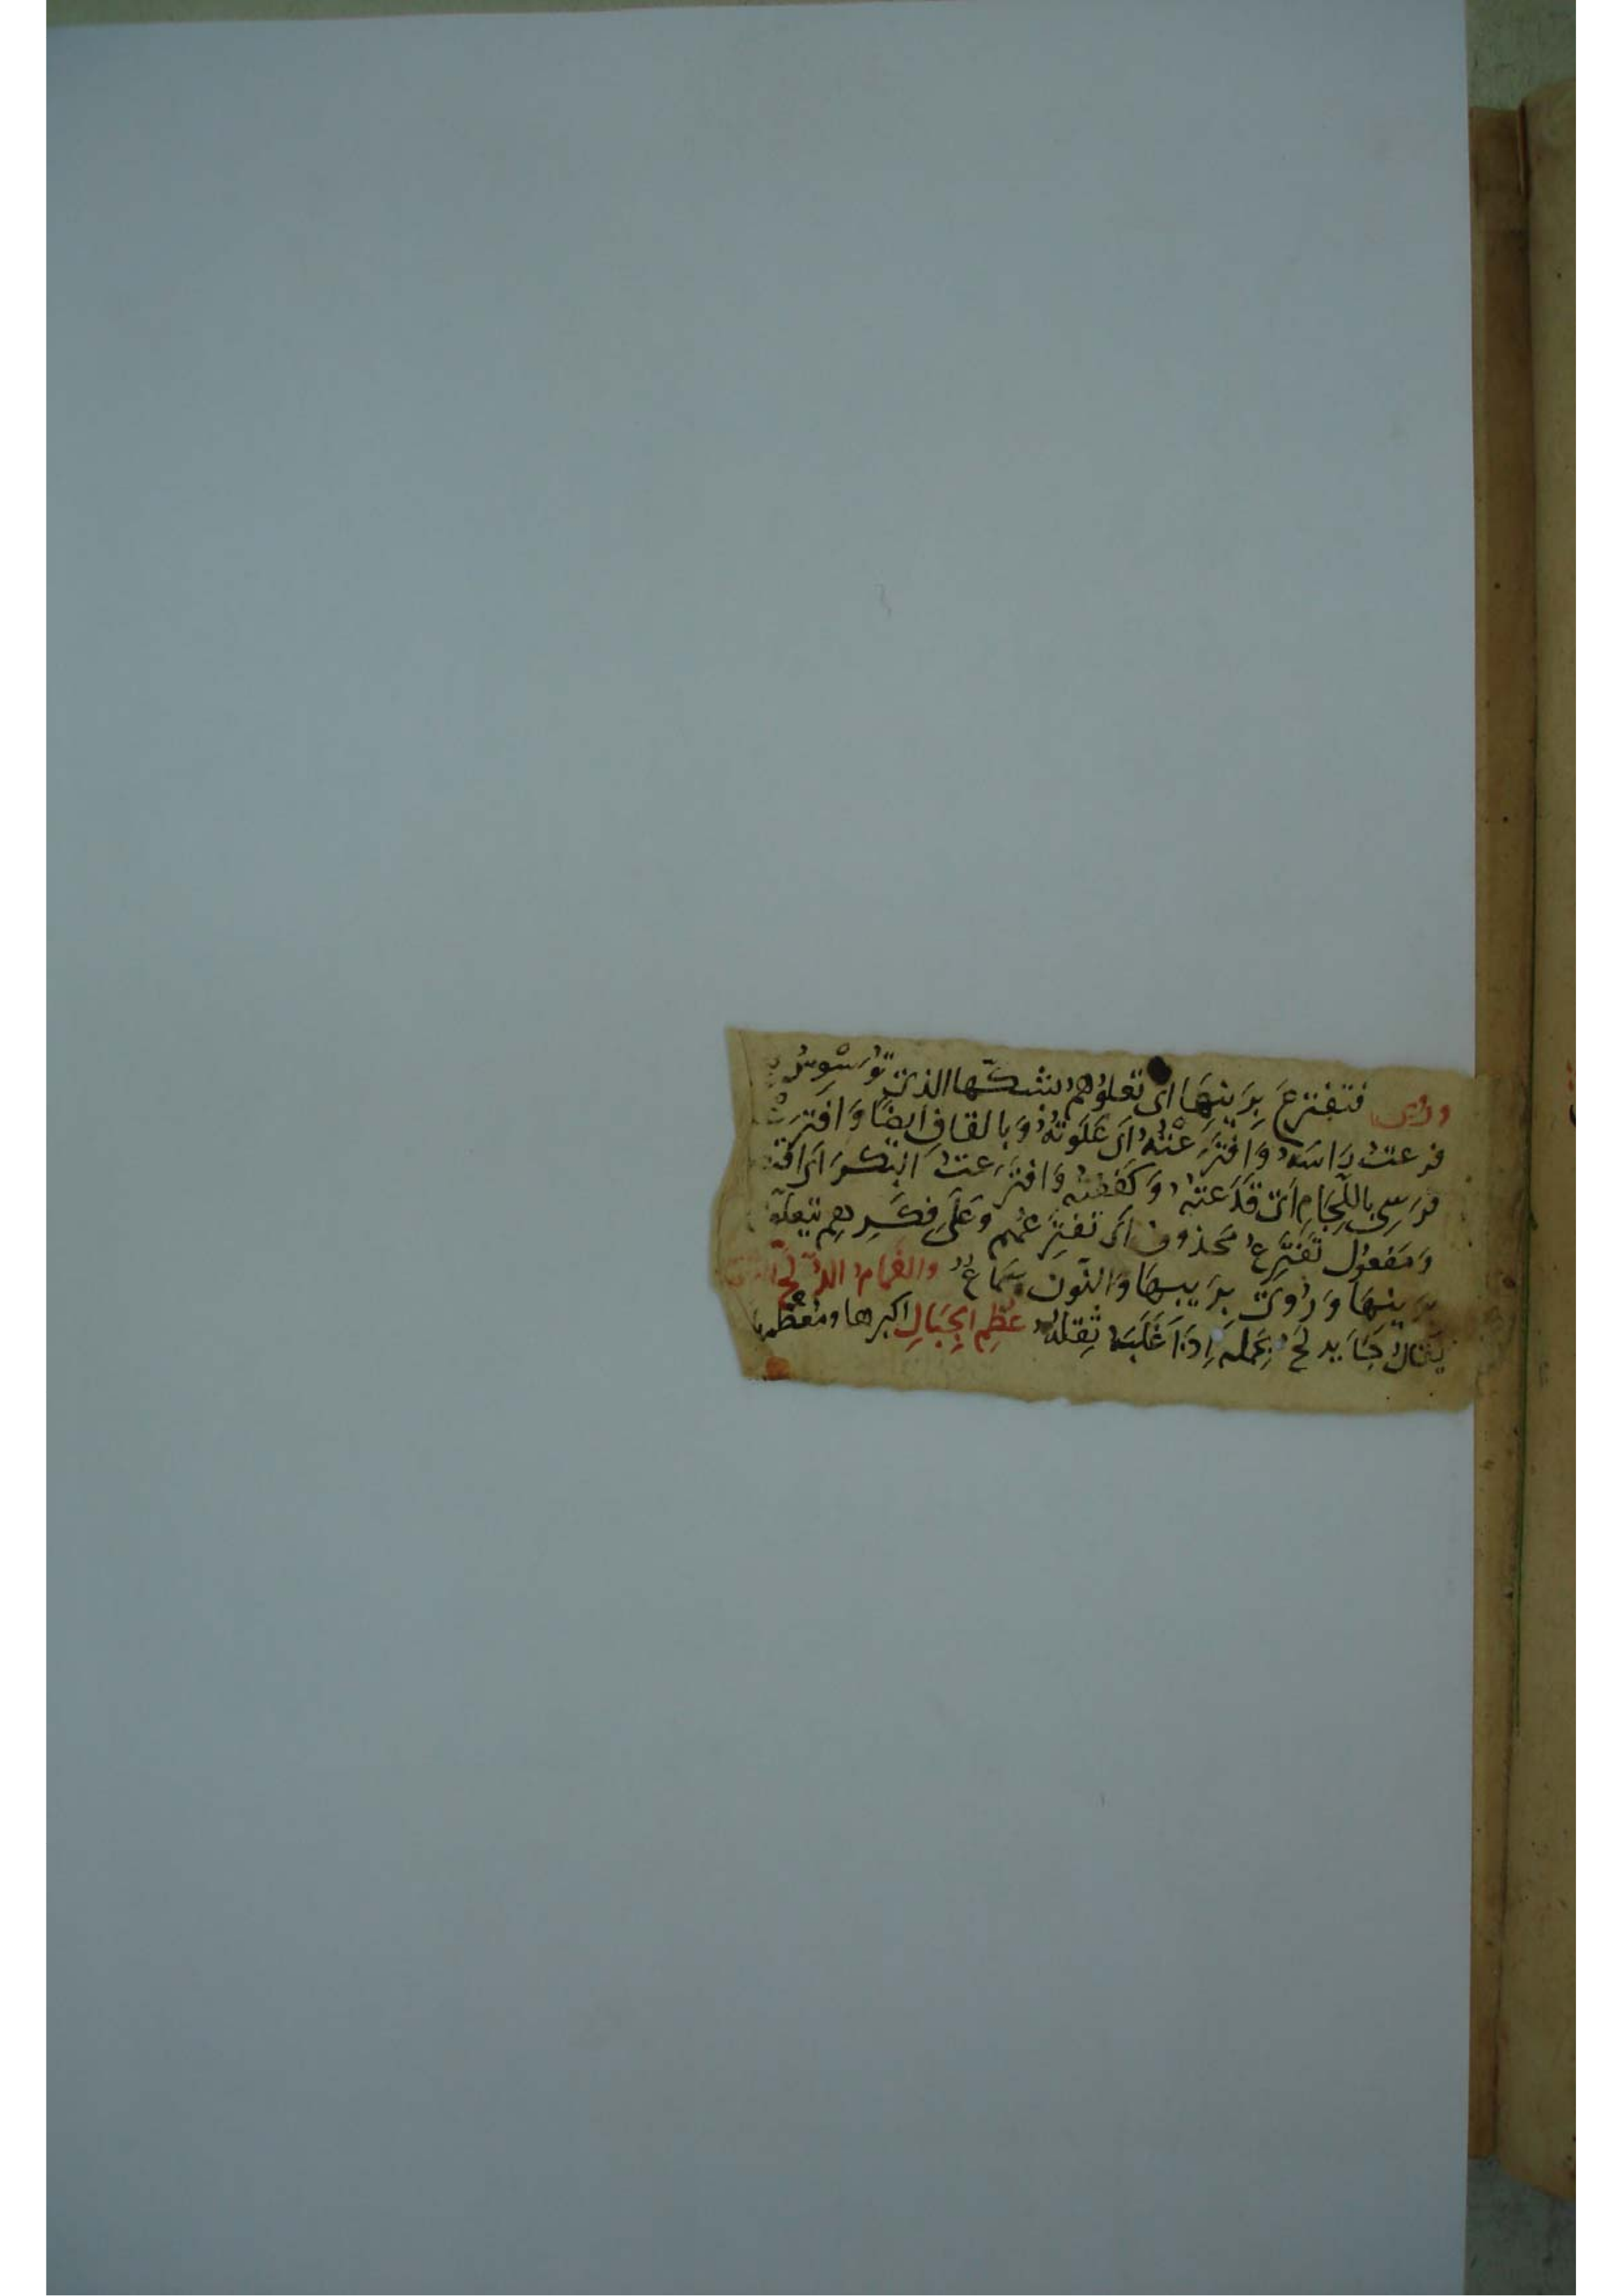 وروى فتفترع برينها اى تعلوهم بشكها الذى توسوس
فرعت راسه وافترعته اى علوته وبالقاف ايضا وافترعت
فرسى باللجام اى قدعته وكففته وافترعت البكر اى
ومفعول تفترع محذوف اى تفترعهم وعلى فكرهم يتعلق
برينها وروى بريبها والنون سماع والغمام الدلح
يقال جا يدلح بحمله اذا غلبه ثقله عظم الجبال اكبرها ومعظمها